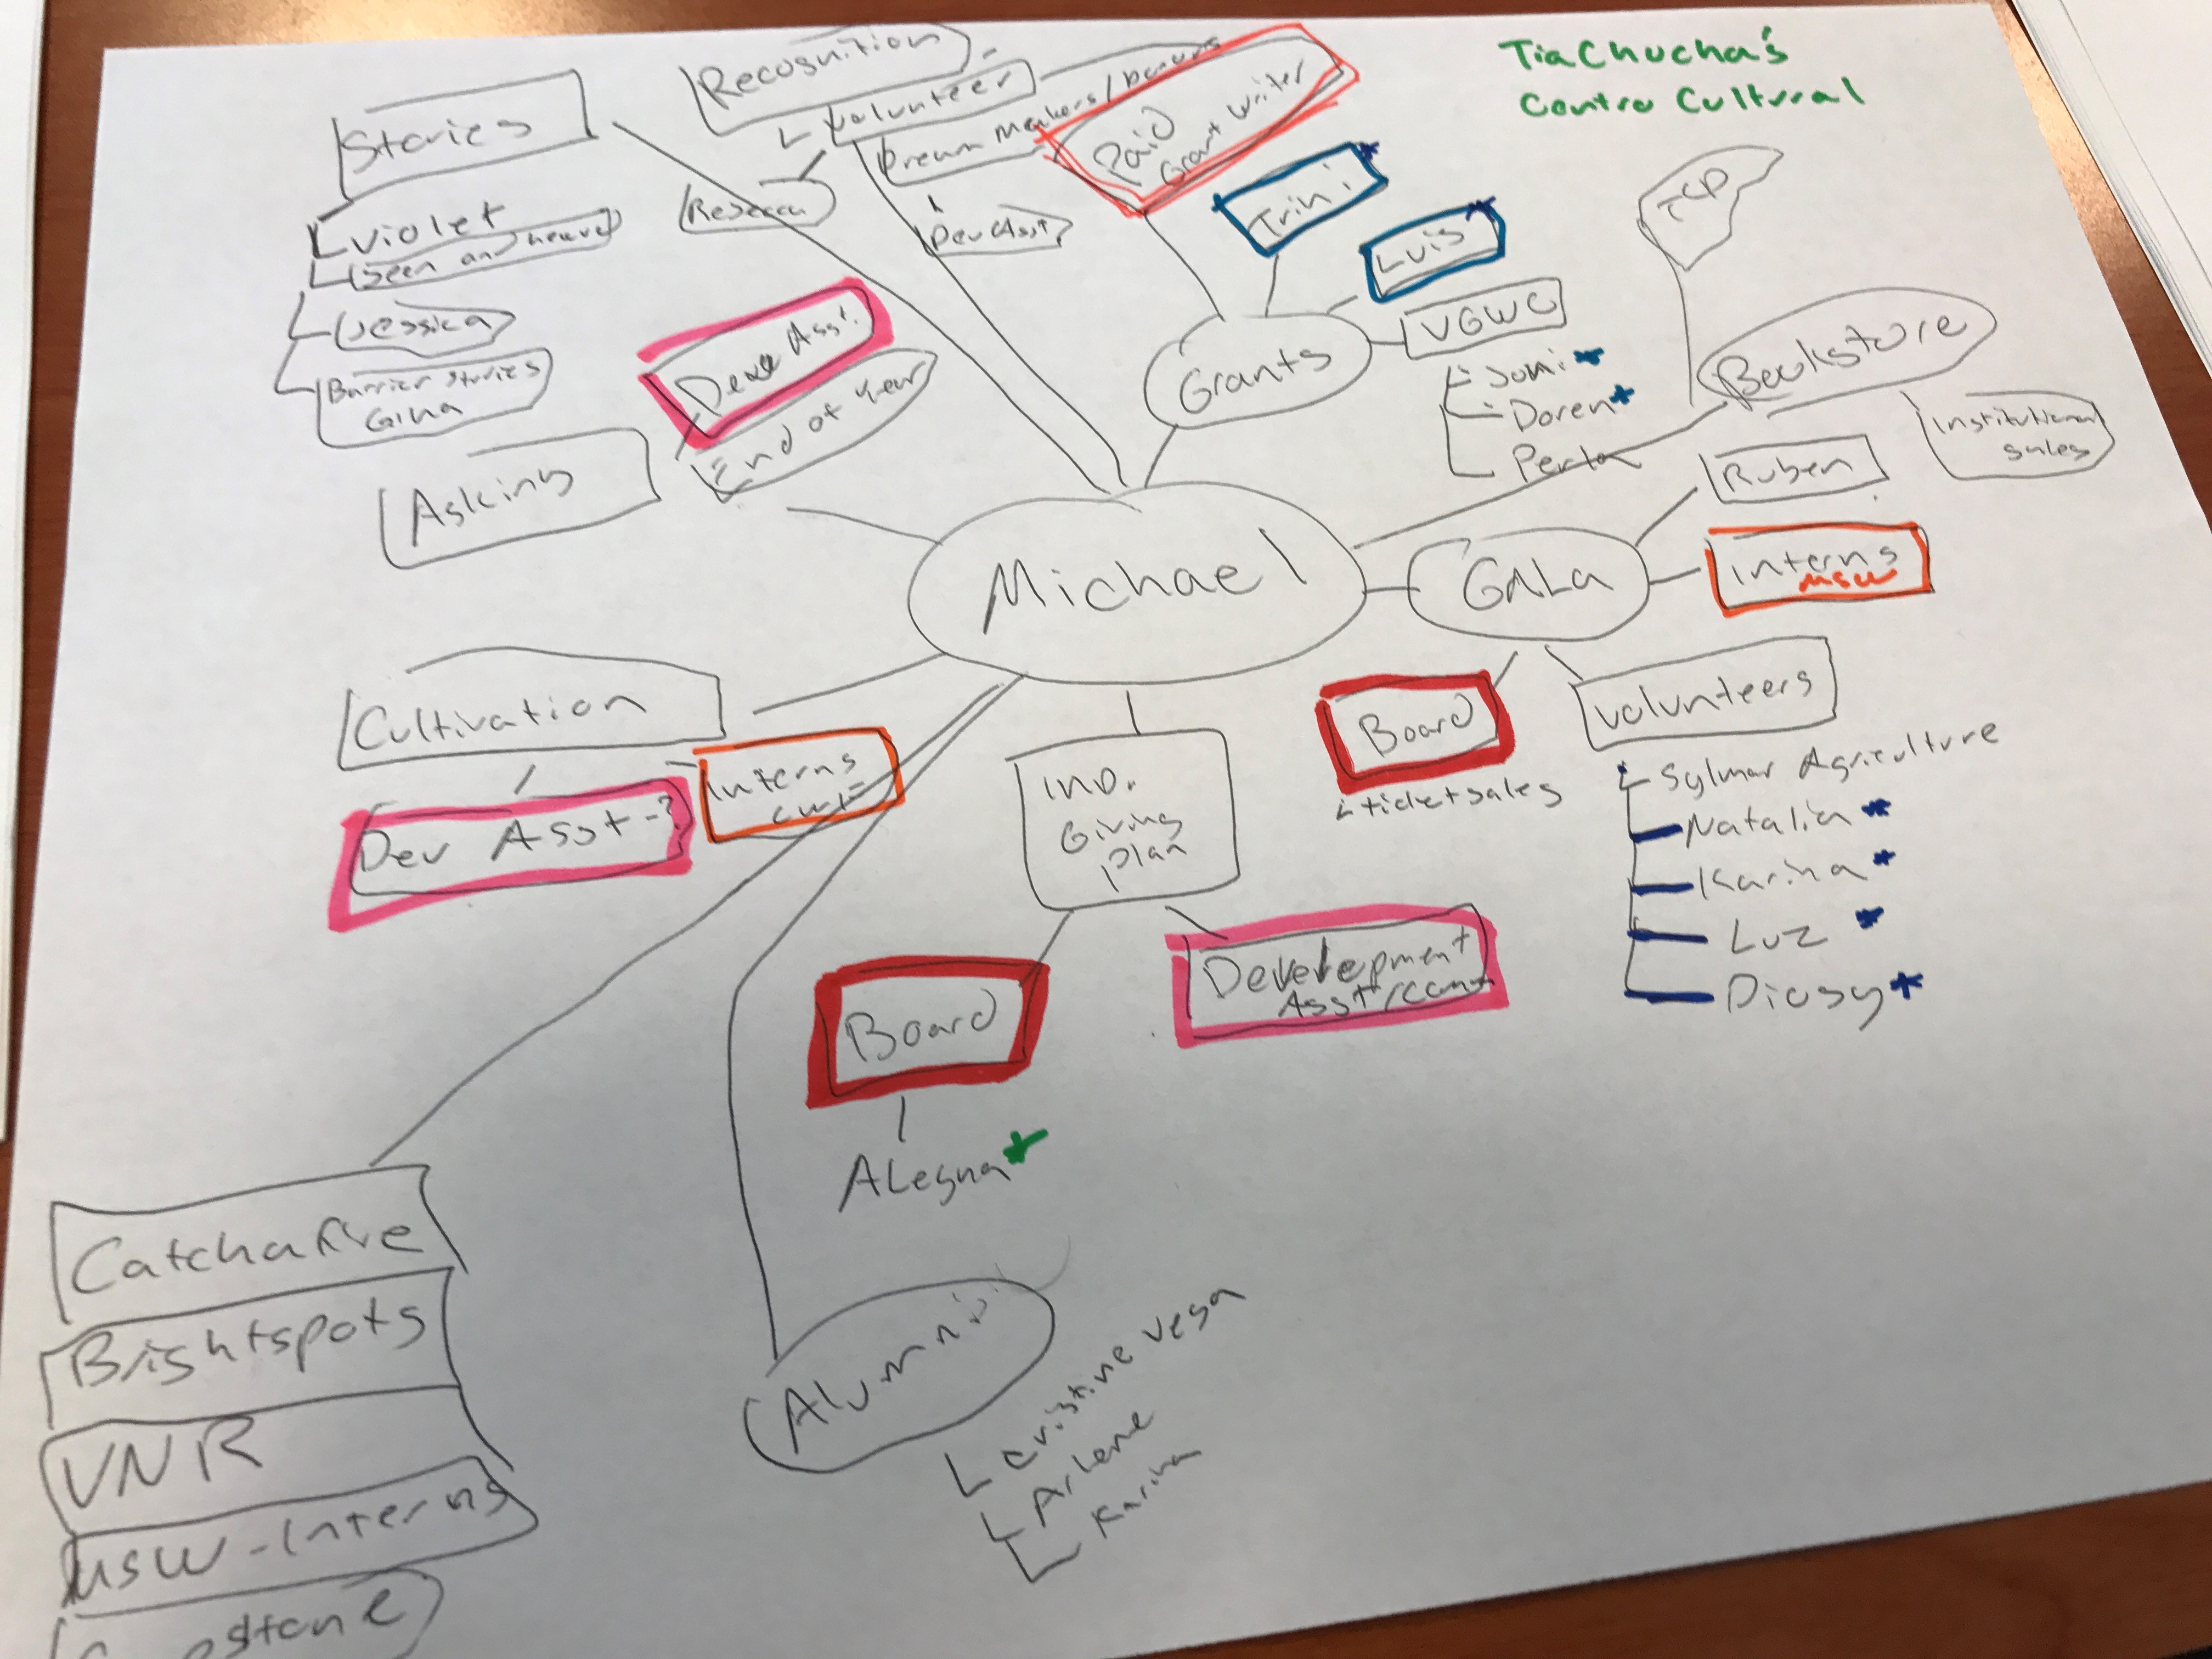 Tia Chucha's
Centro Cultural
Recognition
Volunteer
Dream Makers / Donors
Rebecca
Dev Asst
Stories
Violet
Seen and heard
Jessica
Barrier Stories
Gina
Paid
Grant Writer
Trini
Luis
VGWC
Jomi
Doren
Perla
Grants
TCP
Bookstore
Institutional
Sales
Deve Asst.
End of Year
Asking
Michael
GALa
Ruben
Interns
MSW
Board
ticket sales
Volunteers
Sylmar Agriculture
Natalia
Karina
Luz
Diosy
Cultivation
Dev Asst-?
Interns
IND.
Giving
Plan
Board
Alegna
Development
Asst/Comm
Alumni
Cristine Vega
Arlene
Karina
Catchafire
Brightspots
VNR
MSW-Interns